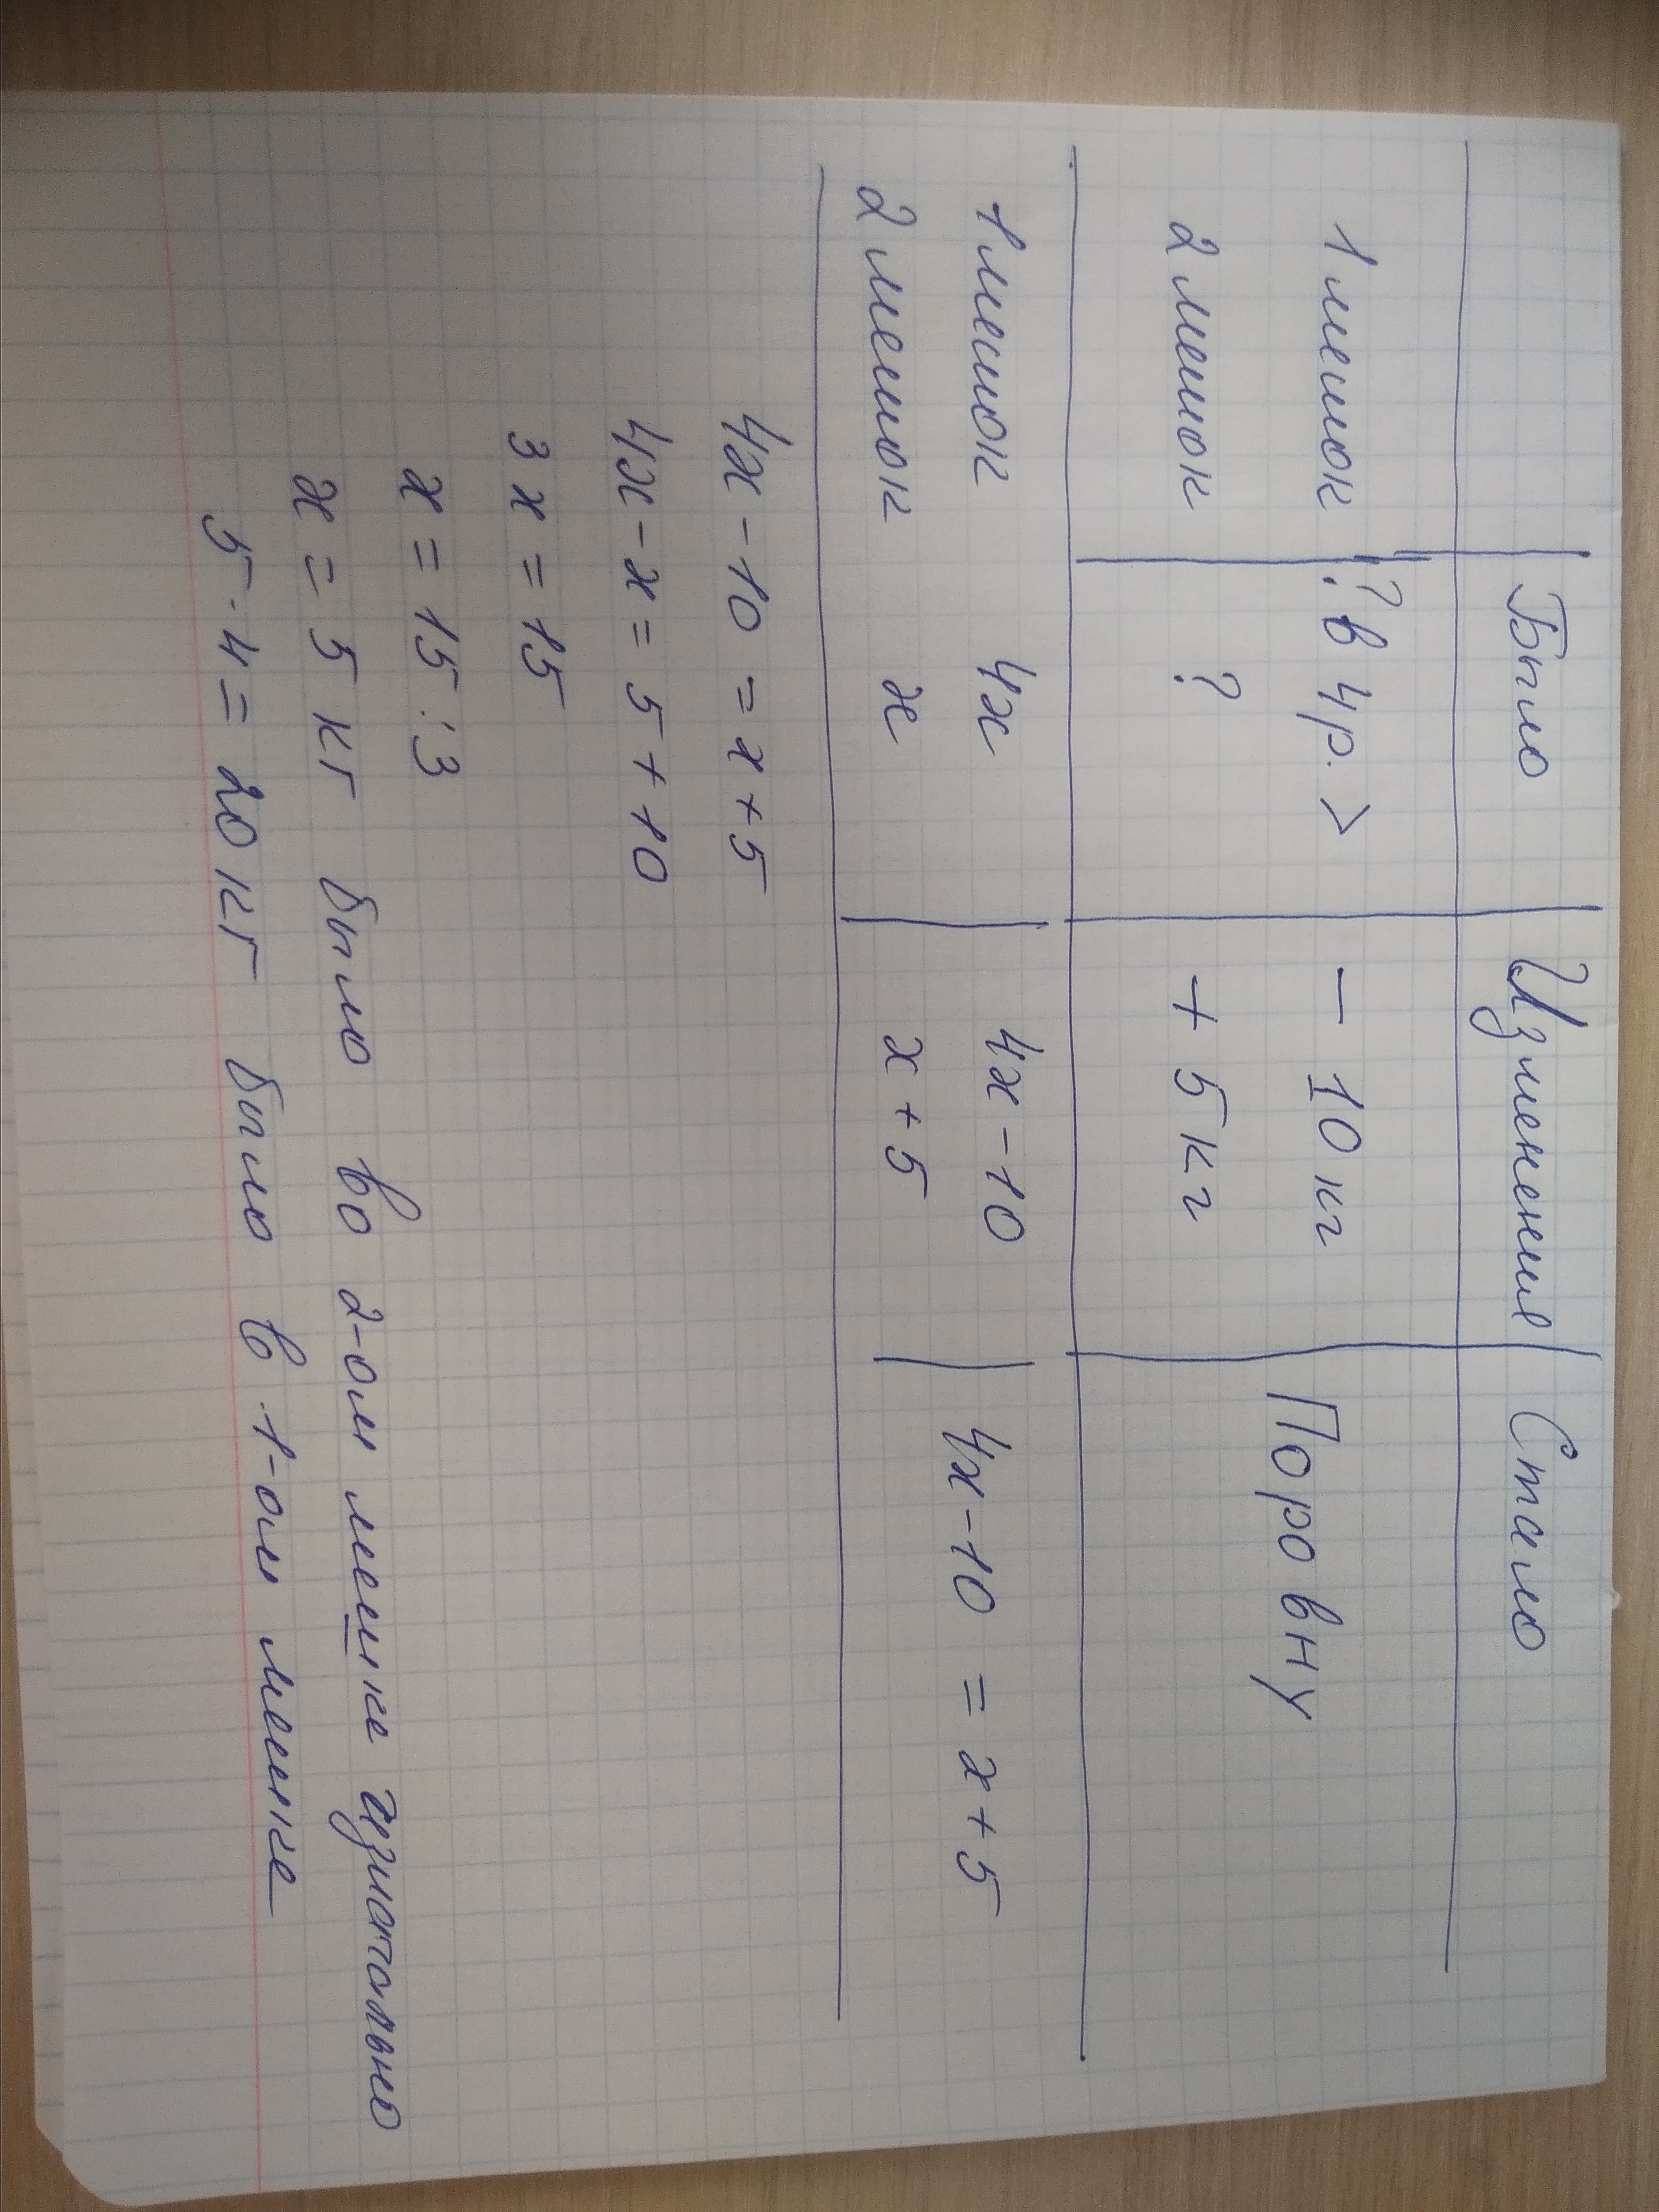 Было Изменения Стало
1 мешок ? в 4р. > - 10 кг
Поровну
2 мешок ? + 5 кг
1 мешок 4x 4x - 10
4x - 10 = x + 5
2 мешок x x + 5
4x - 10 = x + 5
4x - x = 5 + 10
3x = 15
x = 15 : 3
x = 5 кг было во 2-ом мешке изначально
5 · 4 = 20 кг было в 1-ом мешке